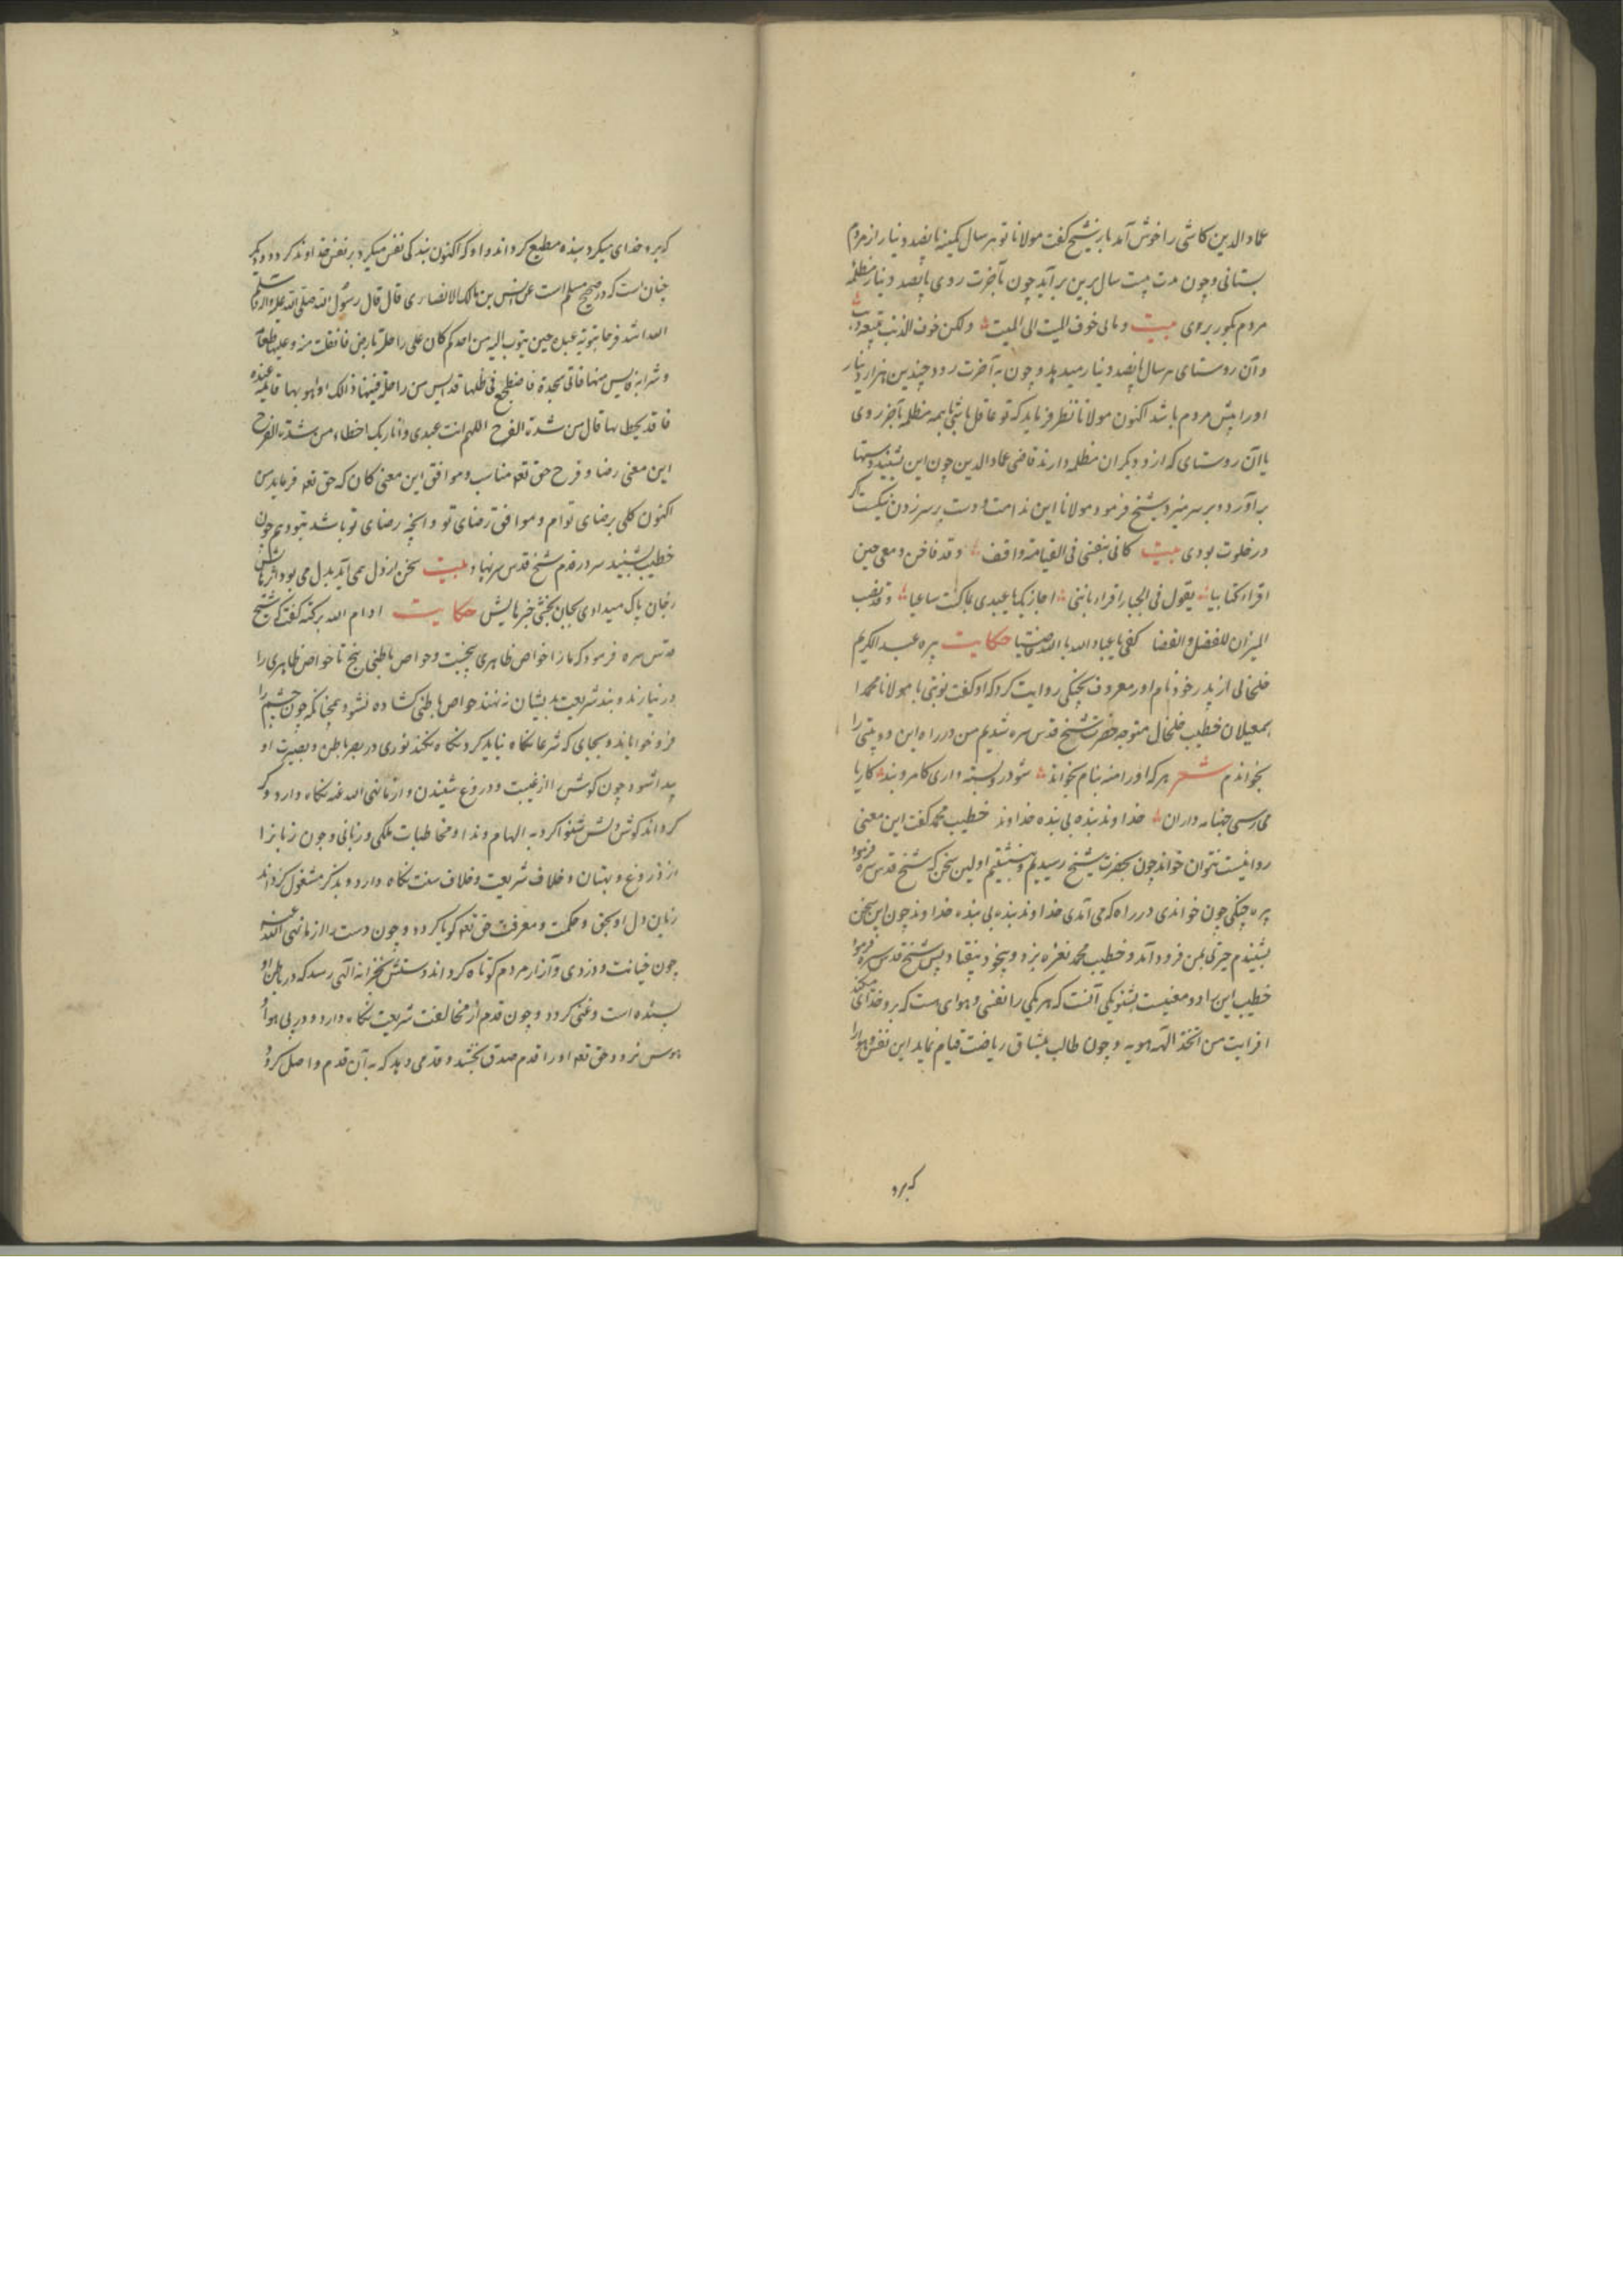 عماد الدین کاشی را خوش آمد باز شیخ گفت مولانا تو هر سال کمینه پانصد دینار از مردم
بستانی و چون مدت بیست سال برین برآید چون بآخرت روی با پانصد دینار مظلمه
مردم بگور بروی بیت و مابی خوف المیت الی المیت ولکن خوف الذنب
و آن روستای هر سال پانصد دینار میدهد و چون به آخرت رود چندین هزار دینار
او را پیش مردم باشد اکنون مولانا نظر فرماید که تو عاقل باشی با همه مظلمه بآخر روی
یا آن روستای که از و دیگران مظلمه دارند قاضی عماد الدین چون این بشنید دستها
برآورد و بر سر میزد شیخ فرمود مولانا این ندامت و دست بر سر زدن نیکست اگر
در خلوت بودی بیت کانی بنفسی فی القیامة واقف و قد فاض دمعی حین
اقراء کتابیا یقول فی الجبار اقراء باننی اجازیک یا عبدی بما کنت ساعیا و قد نصب
المیزان للفضل والقضا کفی یا عباد الله بالله قاضیا حکایت پیره عبد الکریم
خلخالی از پدر خود نام او معروف بچنکی روایت کرد که او گفت نوبتی با مولانا محمد
اسمعیلان خطیب خلخال متوجه حضرت شیخ قدس سره شدیم من در راه این دو بیتی را
بخواندم شعر هر که او را منه بنام بخواند شو در و بسته داری کامرو بند کاریا
می رسی جنبانه داران خداوند بنده بی بنده خداوند خطیب محمد گفت این معنی
روا نیست نتوان خواند چون بحضرت شیخ رسیدیم و بنشستیم اولین سخن که شیخ قدس سره فرمود
پیره چنکی چون خواندی در راه که می آمدی خداوند بنده بی بنده خداوند چون این سخن
بشنیدم حیرتی بمن فرود آمد و خطیب محمد نعره بزد و بیخود بیفتاد پس شیخ قدس سره فرمود
خطیب این را دو معنیست بشنو یکی آنست که هر یکی را نفسی و هوای هست که برو خدای میکند
افرایت من اتخذ الهه هویه و چون طالب بمشاق ریاضت قیام نماید این نفس و هوا را
که برو
که برو خدای میکرد بنده مطیع گرداند و او که اکنون بندکی نفس میکرد بر نفس خداوند گردد و دیگر
چنان است که در صحیح مسلم است عن انس بن مالک الانصاری قال قال رسول الله صلی الله علیه و اله وسلم
الله اشد فرحا بتوبة عبده حین یتوب الیه من احدکم کان علی راحلة بارض فانفلتت منه و علیها طعامه
و شرابه فایس منها فاتی شجرة فاضطجع فی ظلها قد ایس من راحلة فبینما ذالک اذ هو بها قایمة عنده
فاخذ بخطامها قال من شدة الفرح اللهم انت عبدی و انا ربک اخطاء من شدة الفرح
این معنی رضا و فرح حق تعه مناسب و موافق این معنی کان که حق تعه فرماید من
اکنون کلی برضای توام و موافق رضای تو و آنچه رضای تو باشد بتو دهم چون
خطیب بشنید سر در قدم شیخ قدس سره نهاد بیت سخن از دل همی آید بدل می بود اثرهایش
زجان پاک میدادی بجان بخشی خبرهایش حکایت ادام الله برکته گفت که شیخ
قدس سره فرمود که ما را خواص ظاهری پنجست و حواص باطنی پنج تا حواص ظاهری را
در نیارند و بند شریعت بدیشان ننهند حواص باطنی کشاده نشود همچنانکه چون چشم را
فرو خواباند و بجای که شرعا نکاه نباید کرد نکاه نکند نوری در بصر باطن و بصیرت او
پیدا شود و چون کوش را از غیبت و دروغ شنیدن و از ما نهی الله عنه نکاه دارد و کر
گرداند کوش دلش شنوا کردد به الهام و ندا و مخاطبات ملکی و ربانی و چون زبانرا
از دروغ و بهتان و خلاف شریعت و خلاف سنت نکاه دارد و بذکر مشغول گرداند
زبان دل او بحق و حکمت و معرفت حق تعه گویا کردد و چون دست را از ما نهی الله عنه
چون خیانت و دزدی و آزار مردم کوتاه کرداند دستش بخزانه الهی رسد که در باطن او
بسنده است و غنی گردد و چون قدم از مخالفت شریعت نکاه دارد و در پی هوا و
هوس نرود حق تعه او را قدم صدق بخشد و قدمی دهد که به آن قدم واصل کردد